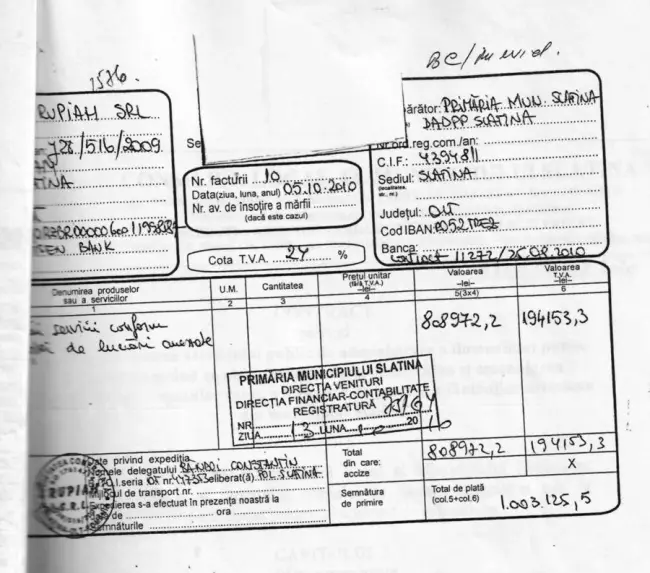 1586.
RUPIAH SRL
J28/516/2009
TINA
BANK
Se
Nr. facturii 10
Data(ziua, luna, anul) 05.10.2010
Nr. av. de însoțire a mărfii
(dacă este cazul)
Cota T.V.A. 24 %
ărător: PRIMĂRIA MUN. SLATINA
DADPP SLATINA
Nr.ord.reg.com./an:
C.I.F.: 4394811
Sediul: SLATINA
Județul: OLT
Cod IBAN:
Banca:
contract 11272/25.08.2010
Denumirea produselor
sau a serviciilor
U.M.
Cantitatea
Prețul unitar
(fără T.V.A.)
–lei–
Valoarea
–lei–
Valoarea
T.V.A.
–lei–
1 2 3 4 5(3x4) 6
servicii conform
de lucrări anexate
808972,2 194153,3
PRIMĂRIA MUNICIPIULUI SLATINA
DIRECȚIA VENITURI
DIRECȚIA FINANCIAR-CONTABILITATE
REGISTRATURĂ
NR.
ZIUA 13 LUNA 10 20 10
RUPIAH
S.R.L.
te privind expediția
Numele delegatului CONSTANTIN
eliberat(ă) POL SLATINA
ocul de transport nr.
Expedierea s-a efectuat în prezența noastră la
de ora
mnăturile
Total
din care:
accize
808972,2 194153,3
X
Semnătura
de primire
Total de plată
(col.5+col.6)
1.003.125,5